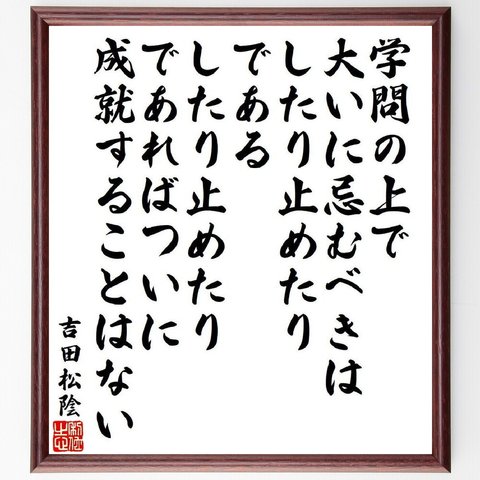 学問の上で
大いに忌むべきは
したり止めたり
である
したり止めたり
であればついに
成就することはない
吉田松陰